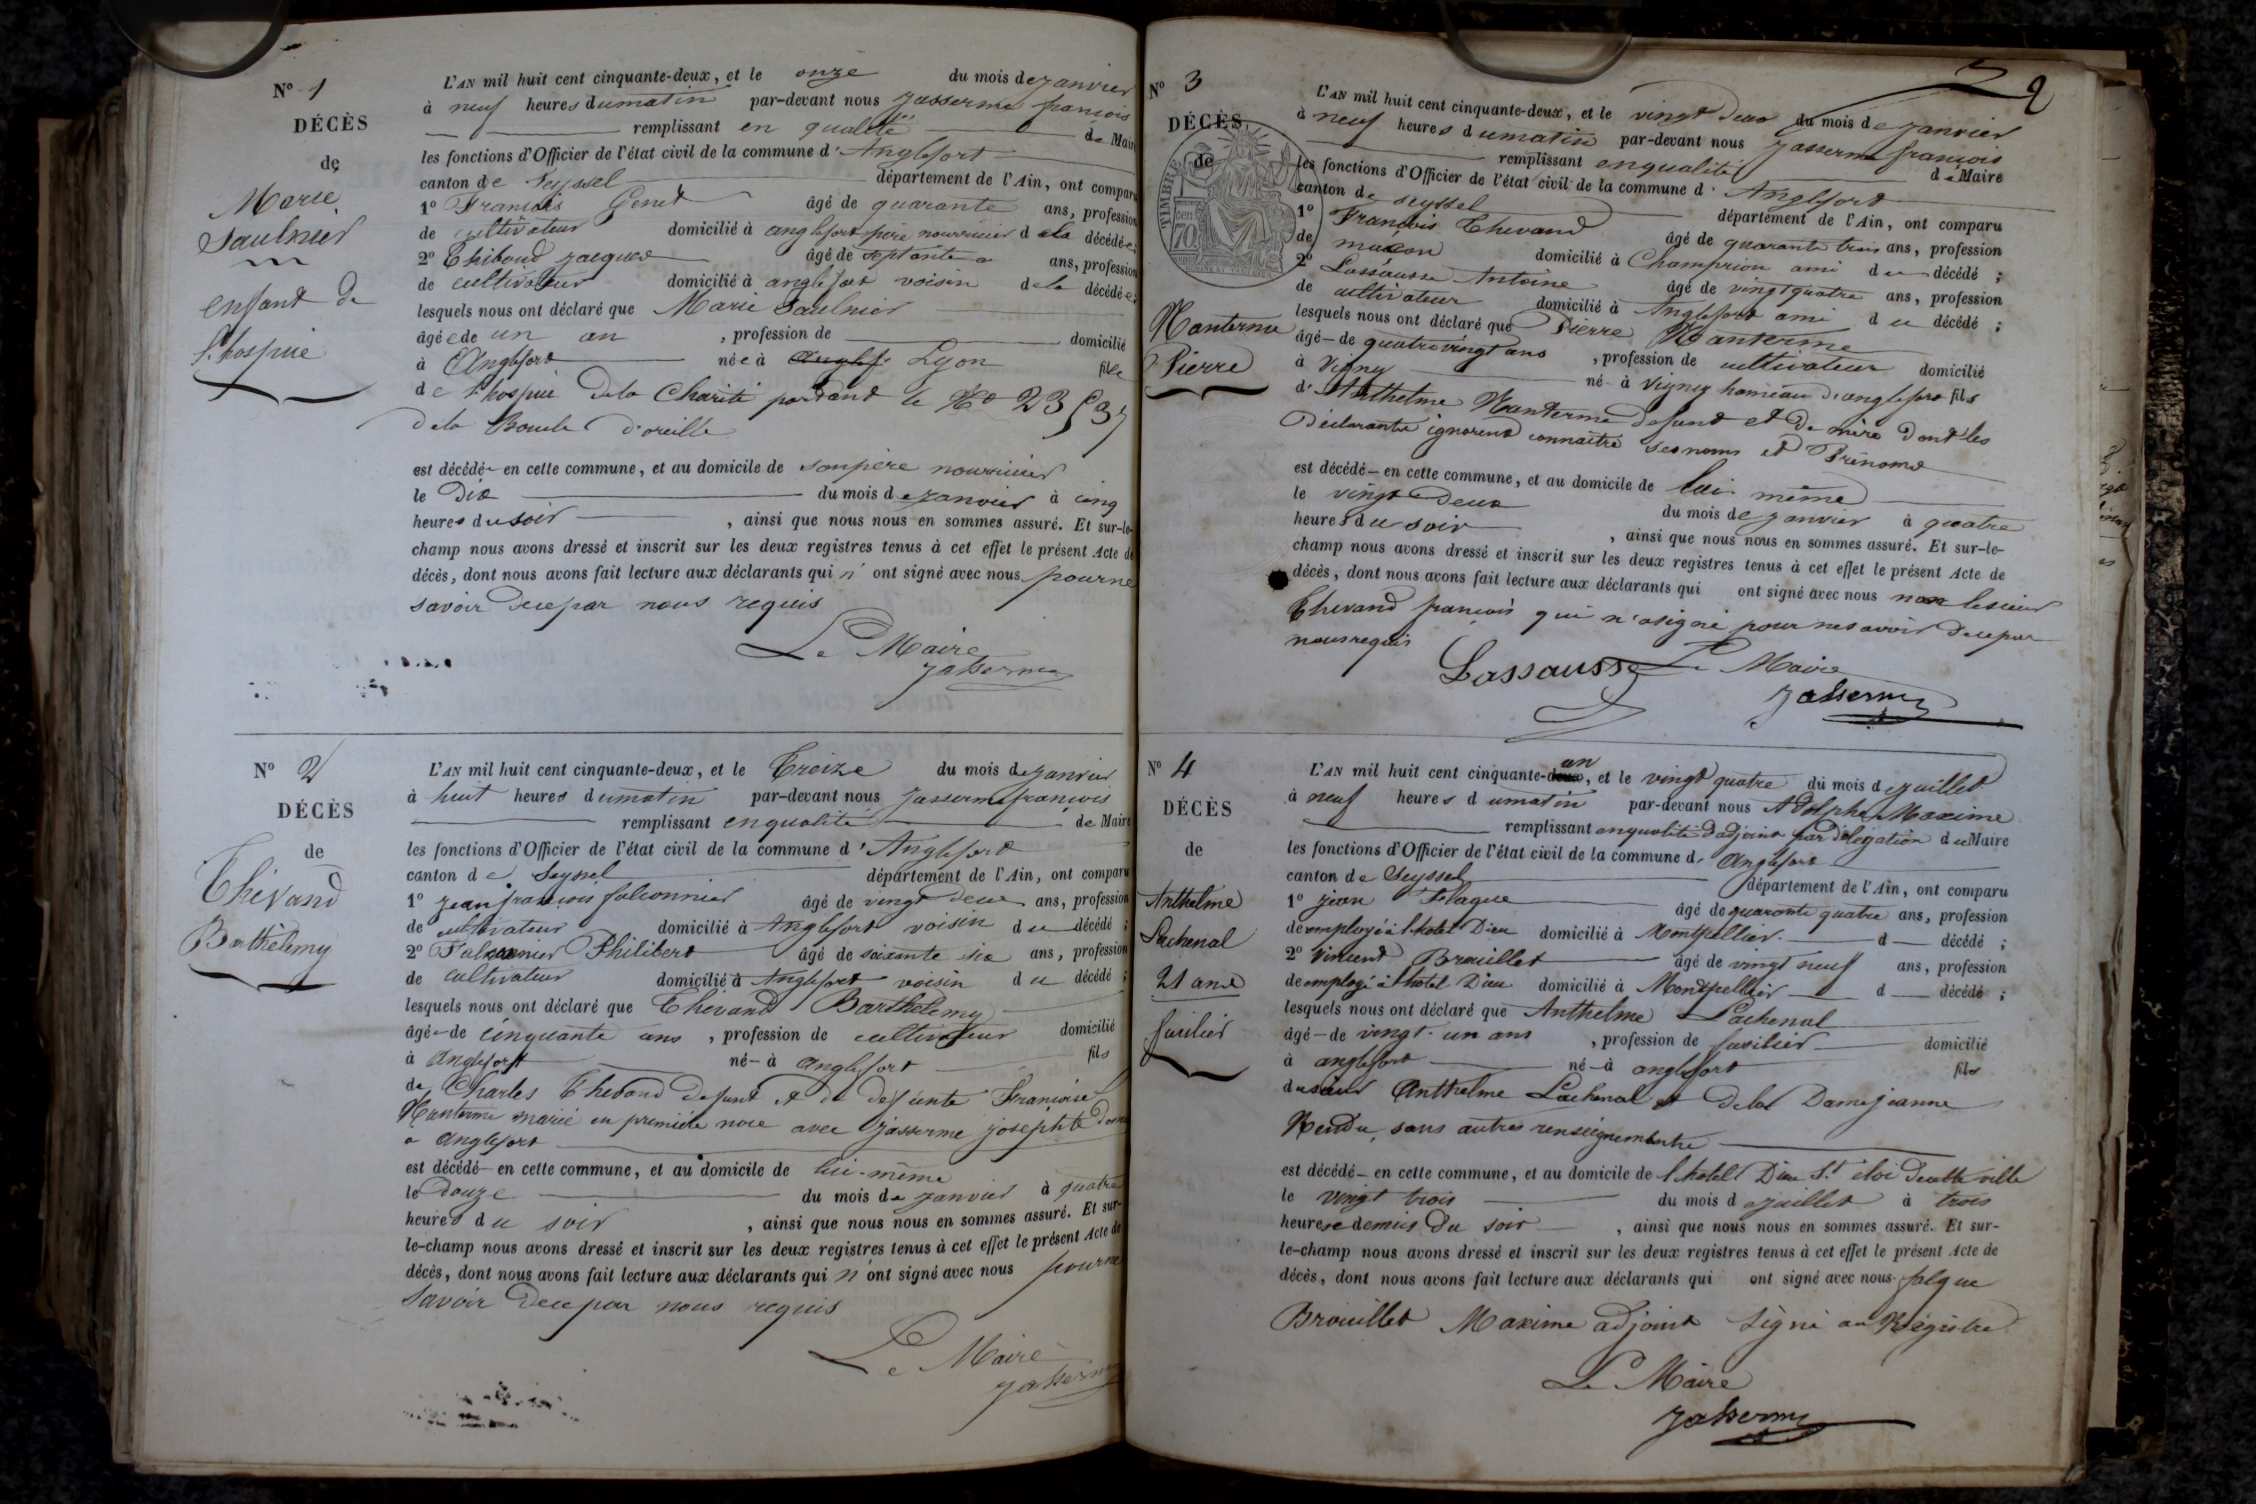 N° 1
DÉCÈS
de
Marie
Saulnier
enfant de
l'hospice
L'AN mil huit cent cinquante-deux, et le onze du mois de janvier
à neuf heures du matin par-devant nous Jasserme françois
remplissant en qualité de Maire
les fonctions d'Officier de l'état civil de la commune d'Anglefort
canton de Seyssel département de l'Ain, ont comparu
1° François Genet âgé de quarante ans, profession
de cultivateur domicilié à anglefort père nourricier de la décédée;
2° Thiboud jacques âgé de septante ans, profession
de cultivateur domicilié à anglefort voisin de la décédée;
lesquels nous ont déclaré que Marie Saulnier
âgée de un an, profession de domicilié
à Anglefort née à Lyon fille
de l'hospice de la Charité portant le N° 23537
de la Boucle d'oreille
est décédé en cette commune, et au domicile de son père nourricier
le Dix du mois de janvier à cinq
heures du soir, ainsi que nous nous en sommes assuré. Et sur-le-
champ nous avons dressé et inscrit sur les deux registres tenus à cet effet le présent Acte de
décès, dont nous avons fait lecture aux déclarants qui n'ont signé avec nous pour ne
savoir de ce par nous requis
Le Maire
Jasserme
N° 2
DÉCÈS
de
Thévand
Barthélemy
L'AN mil huit cent cinquante-deux, et le Treize du mois de janvier
à huit heures du matin par-devant nous Jasserme françois
remplissant en qualité de Maire
les fonctions d'Officier de l'état civil de la commune d'Anglefort
canton de Seyssel département de l'Ain, ont comparu
1° jean françois falconnier âgé de vingt deux ans, profession
de cultivateur domicilié à Anglefort voisin du décédé;
2° Falconnier Philibert âgé de soixante six ans, profession
de cultivateur domicilié à Anglefort voisin du décédé;
lesquels nous ont déclaré que Thévand Barthélemy
âgé de cinquante ans, profession de cultivateur domicilié
à Anglefort né à Anglefort fils
de Charles Thevand defunt et de defunte Françoise
Nanterme marié en première noce avec Jasserme josephte
a Anglefort
est décédé en cette commune, et au domicile de lui-même
le douze du mois de janvier à quatre
heures du soir, ainsi que nous nous en sommes assuré. Et sur-
le-champ nous avons dressé et inscrit sur les deux registres tenus à cet effet le présent Acte de
décès, dont nous avons fait lecture aux déclarants qui n'ont signé avec nous pour ne
savoir de ce par nous requis
Le Maire
Jasserme
2
N° 3
DÉCÈS
de
TIMBRE
70
Nanterme
Pierre
L'AN mil huit cent cinquante-deux, et le vingt deux du mois de janvier
à neuf heures du matin par-devant nous Jasserme françois
remplissant en qualité de Maire
les fonctions d'Officier de l'état civil de la commune d'Anglefort
canton de Seyssel département de l'Ain, ont comparu
1° François Thevand âgé de quarante trois ans, profession
de maçon domicilié à Champrion ami du décédé;
2° Lassausse Antoine âgé de vingt quatre ans, profession
de cultivateur domicilié à Anglefort ami du décédé;
lesquels nous ont déclaré que Pierre Nanterme
âgé de quatre vingt ans, profession de cultivateur domicilié
à Vigny né à Vigny hameau d'anglefort fils
d'Anthelme Nanterme defunt et de mère dont les
Déclarants ignorent connaître ses noms et Prénoms
est décédé en cette commune, et au domicile de lui même
le vingt deux du mois de janvier à quatre
heures du soir, ainsi que nous nous en sommes assuré. Et sur-le-
champ nous avons dressé et inscrit sur les deux registres tenus à cet effet le présent Acte de
décès, dont nous avons fait lecture aux déclarants qui ont signé avec nous non le sieur
Thevand françois qui n'a signé pour ne savoir de ce par
nous requis
Lassausse Le Maire
Jasserme
N° 4
DÉCÈS
de
Anthelme
Lachenal
21 ans
fusilier
L'AN mil huit cent cinquante-un, et le vingt quatre du mois de juillet
à neuf heures du matin par-devant nous Adolphe Maxime
remplissant en qualité d'adjoint par délégation du Maire
les fonctions d'Officier de l'état civil de la commune d'Anglefort
canton de Seyssel département de l'Ain, ont comparu
1° jean Falque âgé de quarante quatre ans, profession
de employé à l'hotel Dieu domicilié à Montpellier d décédé;
2° Vincent Brouillet âgé de vingt neuf ans, profession
de employé à l'hotel Dieu domicilié à Montpellier d décédé;
lesquels nous ont déclaré que Anthelme Lachenal
âgé de vingt-un ans, profession de fusilier domicilié
à anglefort né à anglefort fils
du sieur Anthelme Lachenal et de la Dame jeanne
Rendu, sans autres renseignements
est décédé en cette commune, et au domicile de l'hotel Dieu St éloi de cette ville
le vingt trois du mois de juillet à trois
heures et demies du soir, ainsi que nous nous en sommes assuré. Et sur-
le-champ nous avons dressé et inscrit sur les deux registres tenus à cet effet le présent Acte de
décès, dont nous avons fait lecture aux déclarants qui ont signé avec nous falque
Brouillet Maxime adjoint signé au Régistre
Le Maire
Jasserme